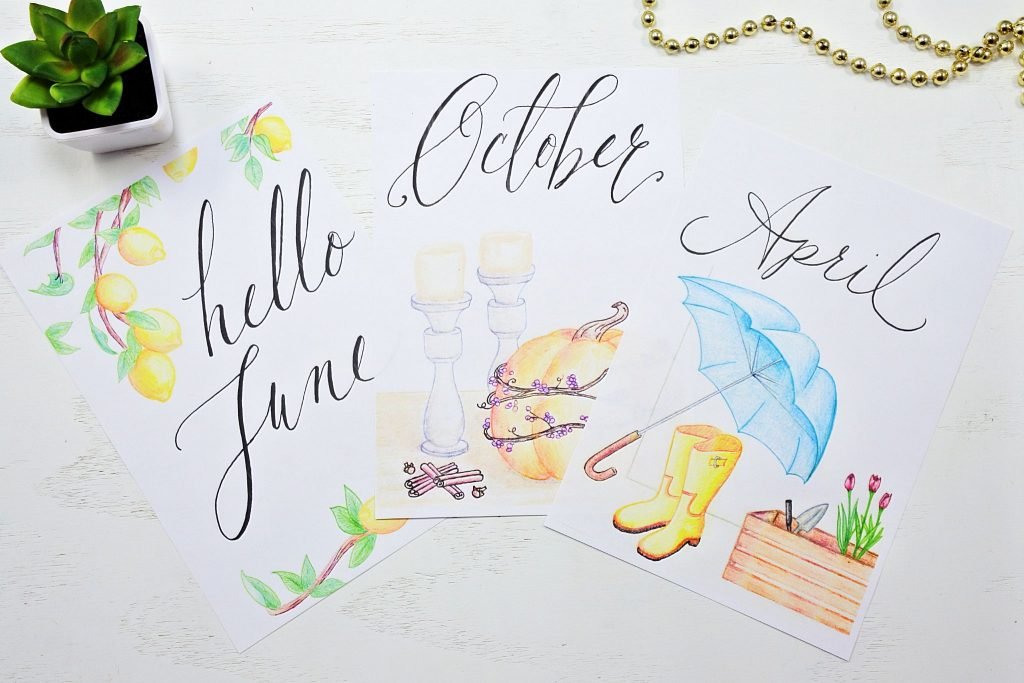 hello
June
October
April